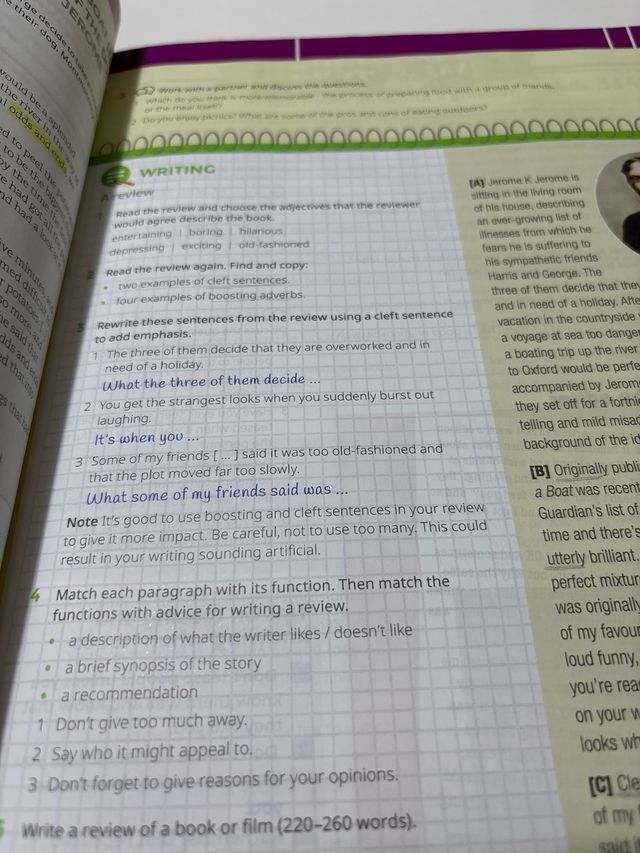 odds and ends
5 Work with a partner and discuss the questions.
1 Which do you think is more memorable - the process of preparing food with a group of friends,
or the meal itself?
2 Do you enjoy picnics? What are some of the pros and cons of eating outdoors?
WRITING
A review
1 Read the review and choose the adjectives that the reviewer
would agree describe the book.
entertaining | boring | hilarious
depressing | exciting | old-fashioned
2 Read the review again. Find and copy:
• two examples of cleft sentences.
• four examples of boosting adverbs.
3 Rewrite these sentences from the review using a cleft sentence
to add emphasis.
1 The three of them decide that they are overworked and in
need of a holiday.
What the three of them decide ...
2 You get the strangest looks when you suddenly burst out
laughing.
It's when you ...
3 Some of my friends [ ... ] said it was too old-fashioned and
that the plot moved far too slowly.
What some of my friends said was ...
Note It's good to use boosting and cleft sentences in your review
to give it more impact. Be careful, not to use too many. This could
result in your writing sounding artificial.
4 Match each paragraph with its function. Then match the
functions with advice for writing a review.
• a description of what the writer likes / doesn't like
• a brief synopsis of the story
• a recommendation
1 Don't give too much away.
2 Say who it might appeal to.
3 Don't forget to give reasons for your opinions.
5 Write a review of a book or film (220–260 words).
[A] Jerome K Jerome is
sitting in the living room
of his house, describing
an ever-growing list of
illnesses from which he
fears he is suffering to
his sympathetic friends
Harris and George. The
three of them decide that they
and in need of a holiday.
vacation in the countryside
a voyage at sea too
a boating trip up the river
to Oxford would be
accompanied by
they set off for a
telling and mild
background of the
[B] Originally
a Boat was recent
Guardian's list of
time and there's
utterly brilliant.
perfect
was originally
of my
loud funny,
you're
on your
looks
[C]
of my
said